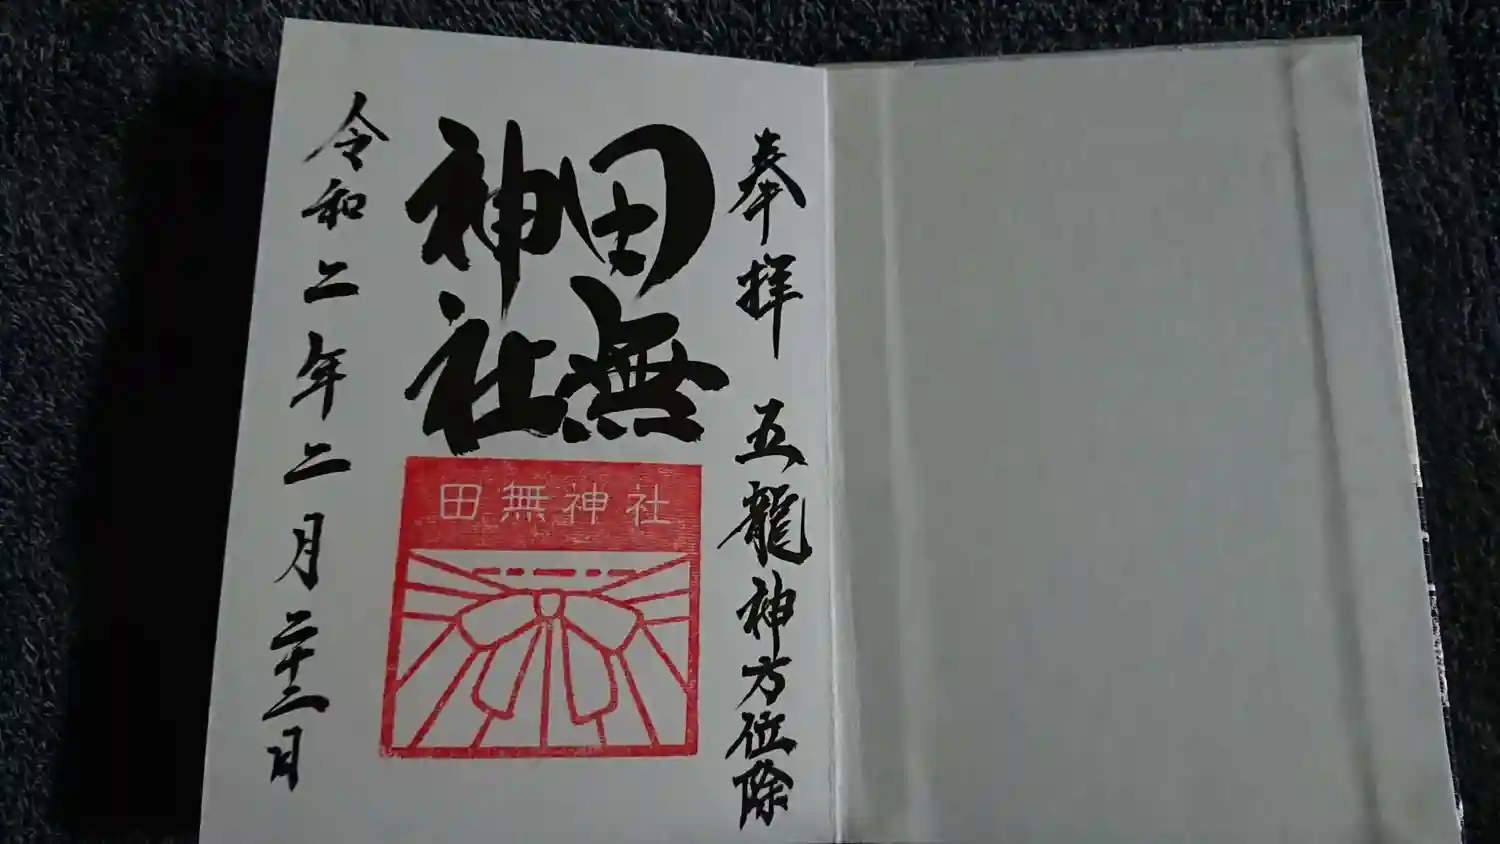 奉拝 五龍神方位除
田無
神社
田無神社
令和二年二月二十二日